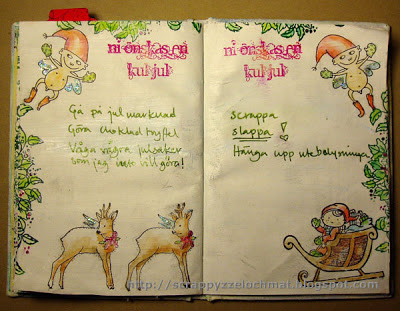 ni önskas en
kul jul
Gå på jul marknad
Göra choklad tryffel
Våga vägra julsaker
som jag inte vill göra!
ni önskas en
kul jul
scrappa
slappa !
Hänga upp utebelysningen
http://scrappyzzelochmat.blogspot.com